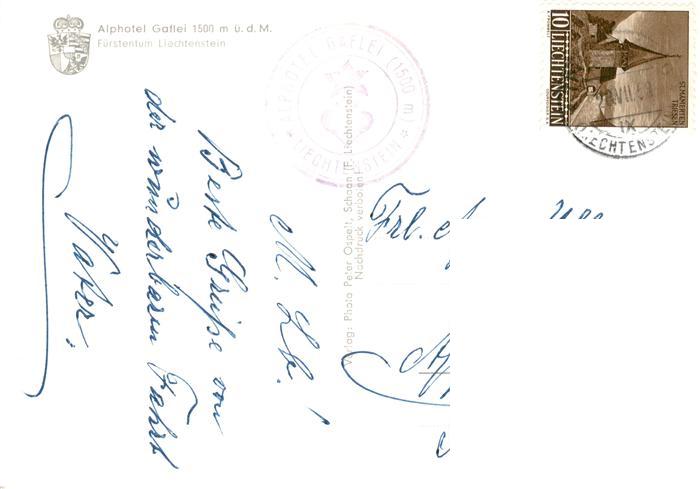 Alphotel Gaflei 1500 m ü. d. M.
Fürstentum Liechtenstein
ALPHOTEL GAFLEI (1500 m)
* LIECHTENSTEIN *
10 LIECHTENSTEIN
ST. MAMERTEN
TRIESEN
LIECHTENSTEIN
Verlag: Photo Peter Ospelt, Schaan (F. Liechtenstein)
Nachdruck verboten!
M. Lb.!
Beste Grüße von
der wunderbaren Fahrt
Vater.
Frl.